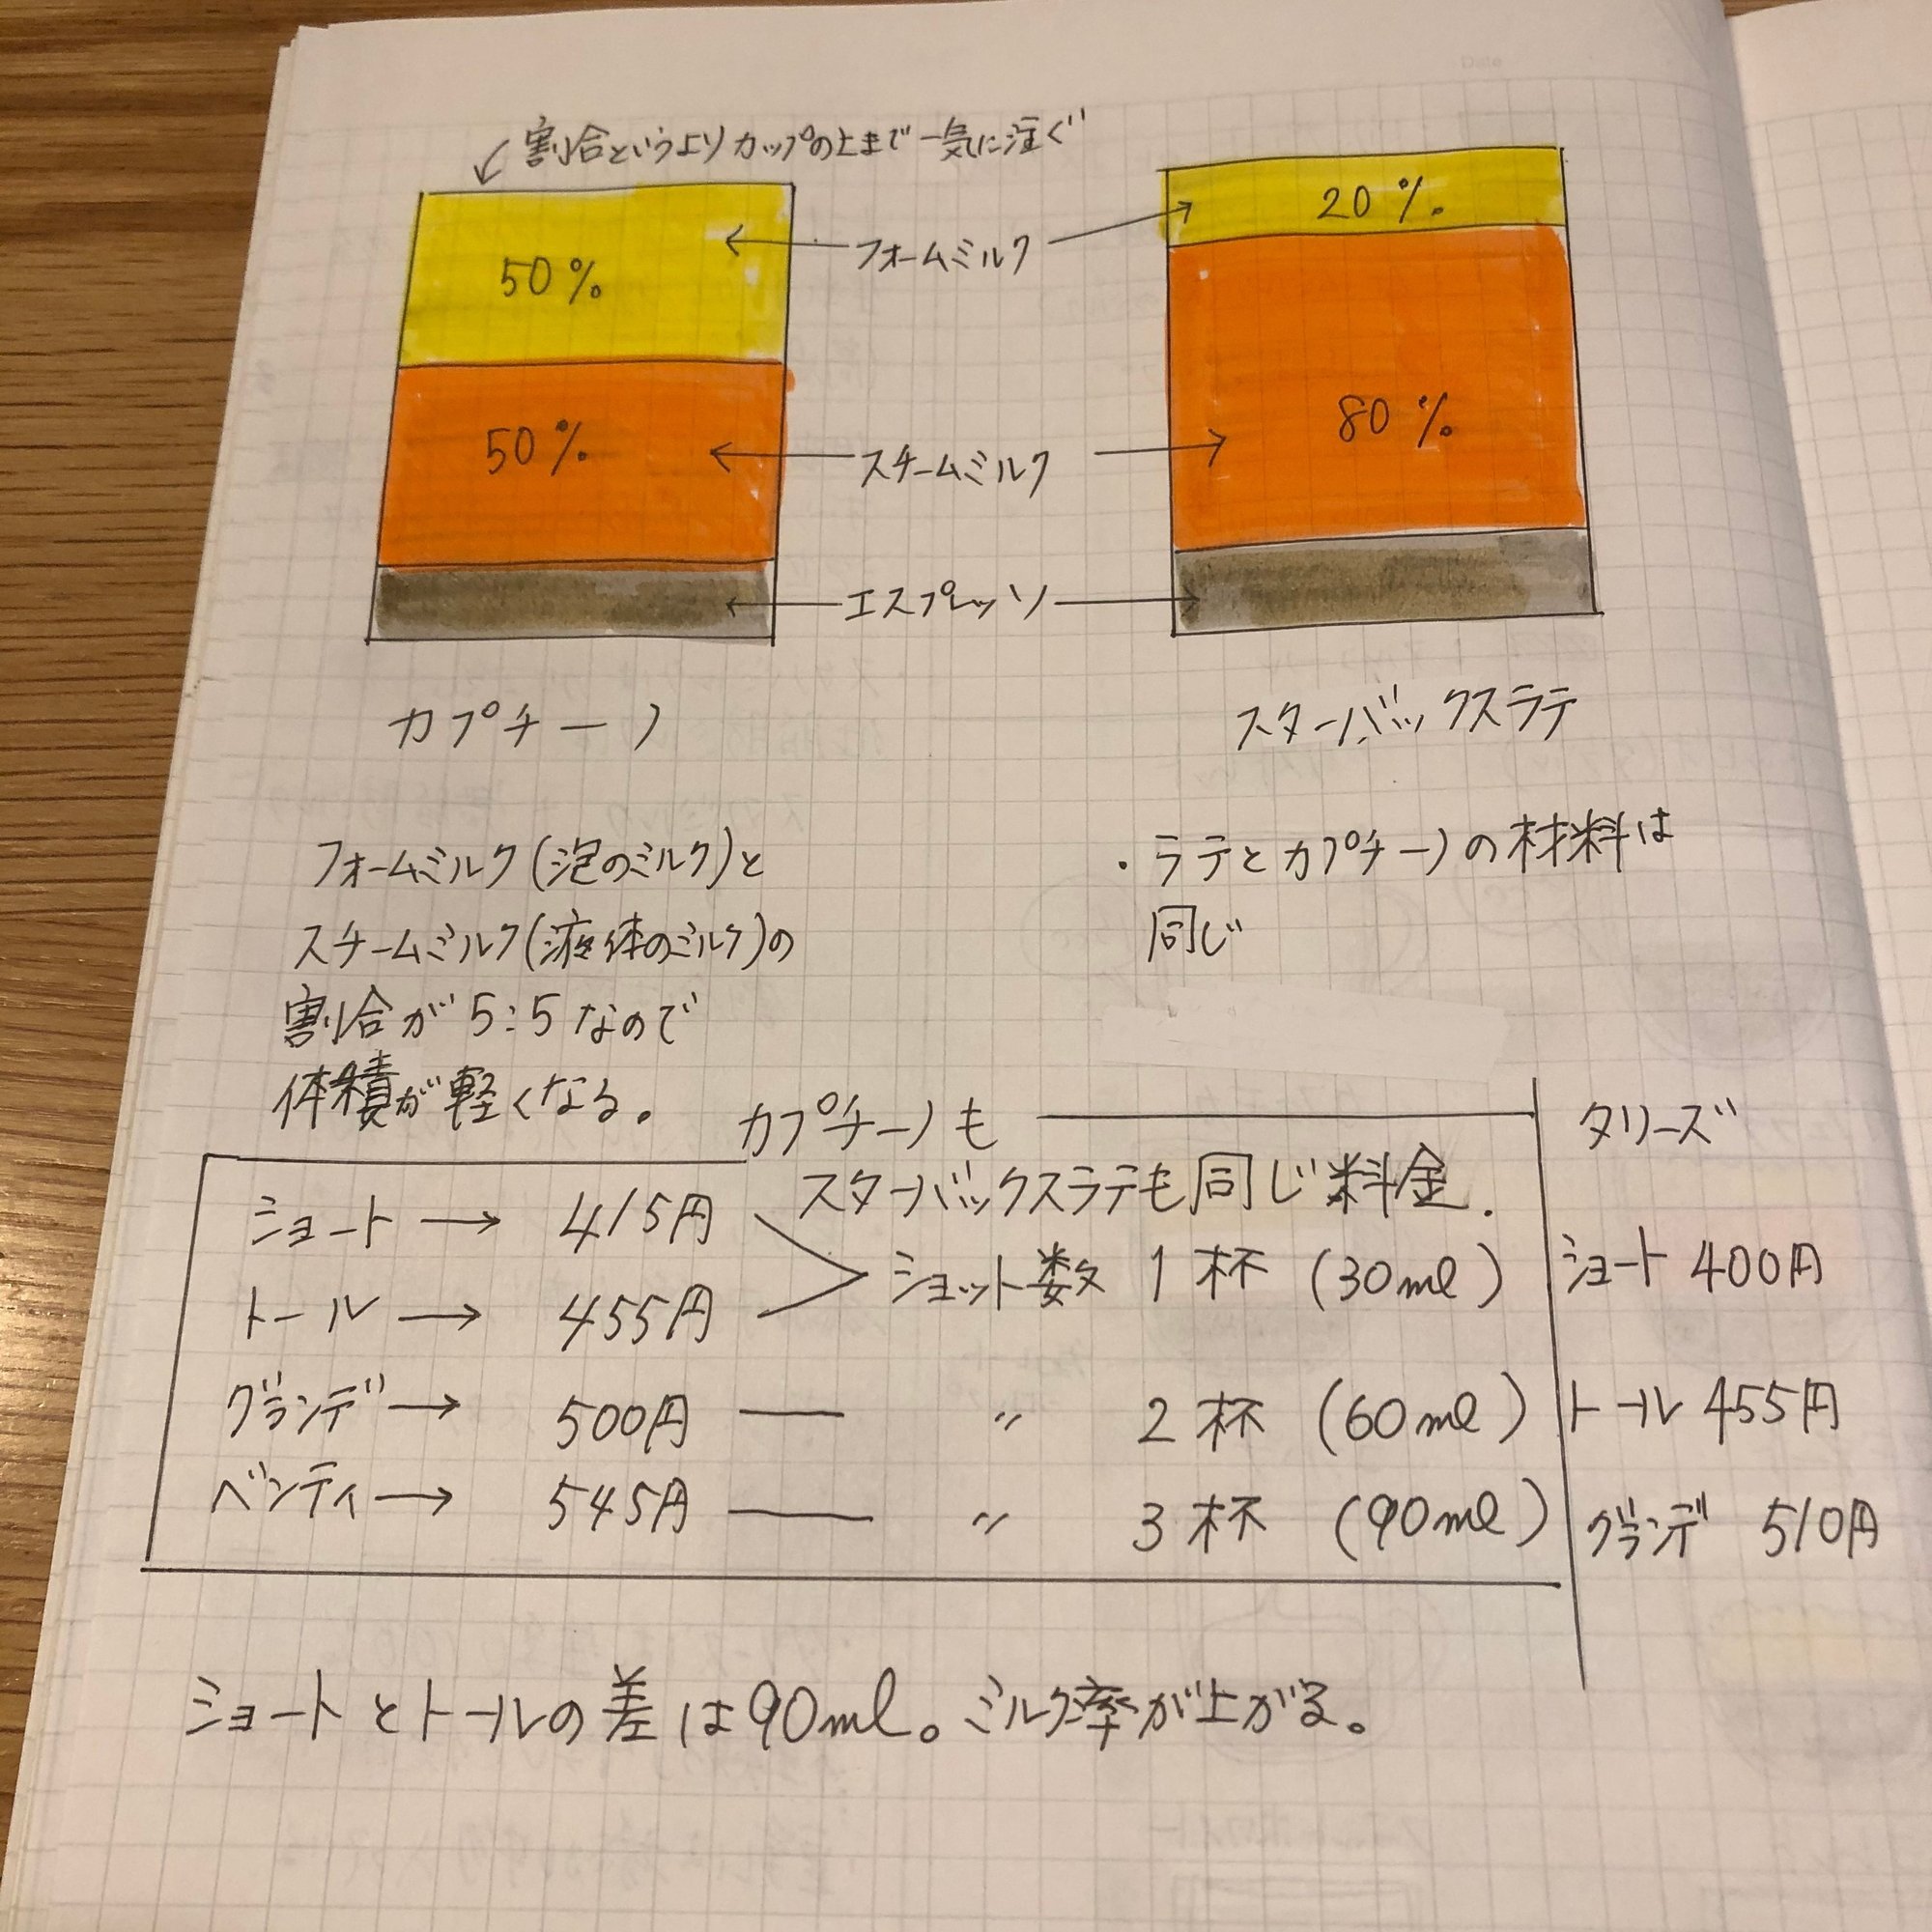 割合というよりカップの上まで一気に注ぐ
50%
50%
フォームミルク
スチームミルク
エスプレッソ
20%
80%
カプチーノ
スターバックスラテ
フォームミルク(泡のミルク)と
スチームミルク(液体のミルク)の
割合が5:5なので
体積が軽くなる。
・ラテとカプチーノの材料は
同じ
カプチーノも
スターバックスラテも同じ料金.
ショート → 415円
トール → 455円
ショット数 1杯 (30ml)
グランデ → 500円 — 〃 2杯 (60ml)
ベンティ → 545円 — 〃 3杯 (90ml)
タリーズ
ショート 400円
トール 455円
グランデ 510円
ショートとトールの差は90ml。ミルク率が上がる。